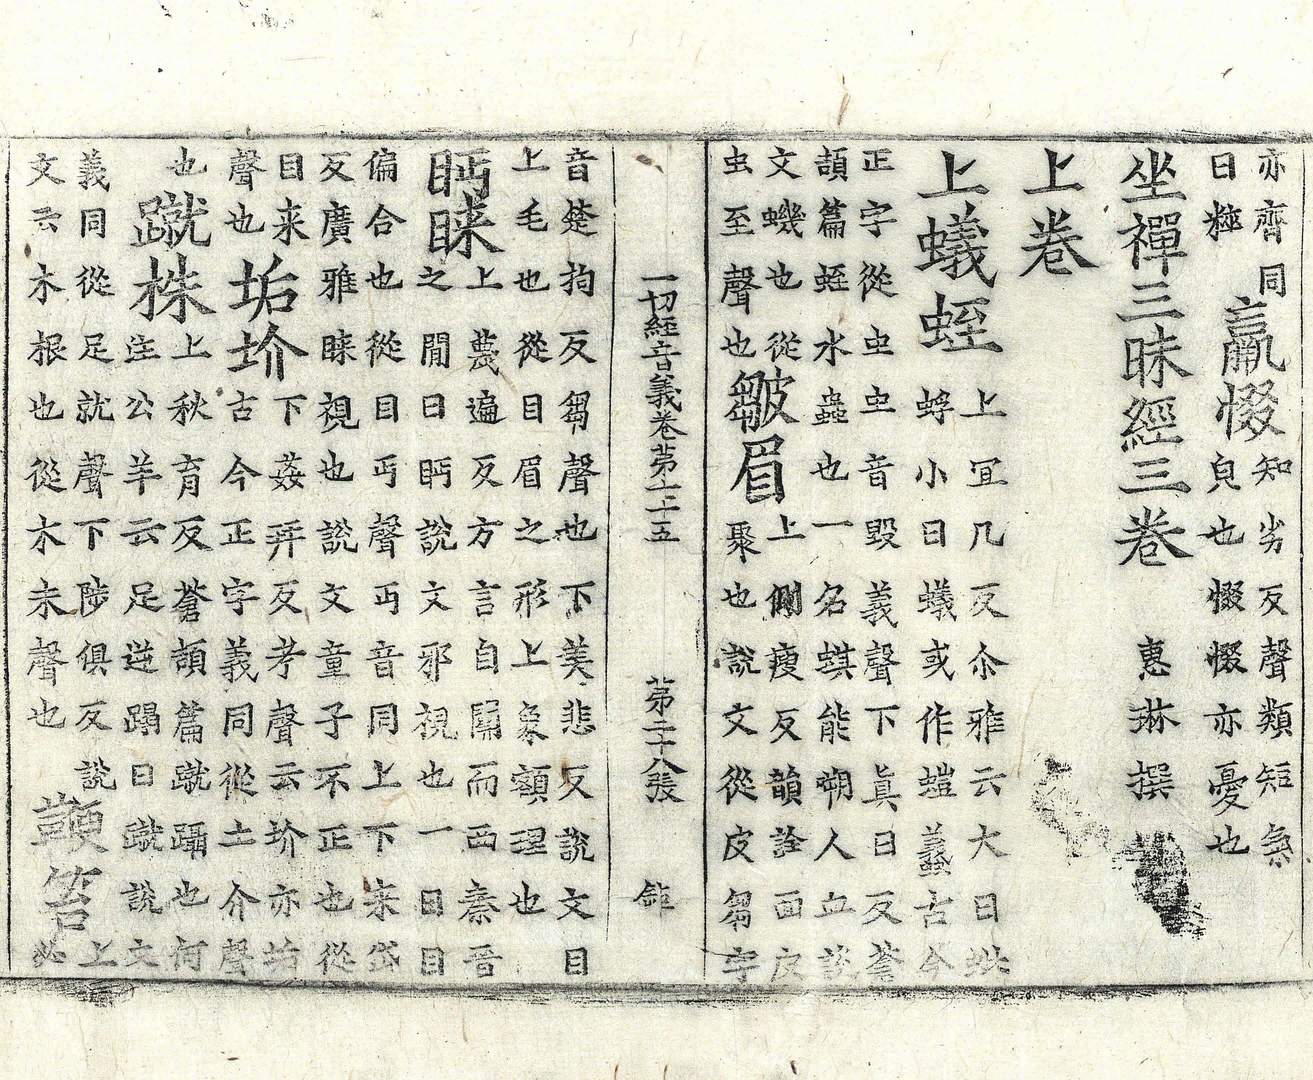 亦齊同
曰粹
羸惙
知劣反聲類短氣
皃也惙惙亦憂也
坐禪三昧經三卷 惠琳撰
上卷
上蟻蛭
上冝几反尒雅云大曰蚍
蜉小曰蟻或作螘蟻古今
正字從虫虫音毀義聲下真日反蒼
頡篇蛭水蟲也一名蜞能嗍人血說
文蟣也從
虫至聲也
皺眉
上側瘦反韻詮面皮
聚也說文從皮芻字
一切經音義卷苐七十五 苐二十八張 鉅
音楚拘反芻聲也下美悲反說文目
上毛也從目眉之形上象額理也
眄睞
上蔑遍反方言自關而西秦晉
之閒曰眄說文邪視也一曰目
偏合也從目丏聲丏音同上下來岱
反廣雅睞視也說文童子不正也從
目来
聲也
垢圿
下姦拜反考聲云圿亦垢
古今正字義同從土介聲
也
蹴株
上秋育反蒼頡篇蹴躡也何
注公羊云足逆蹋曰蹴說文
義同從足就聲下陟俱反說
文云木根也從木朱聲也
鞕笞
上